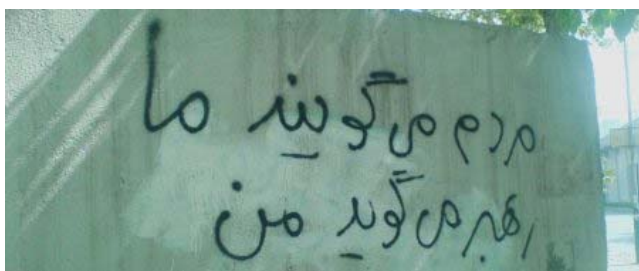 مردم می گویند ما
رهبر می گوید من